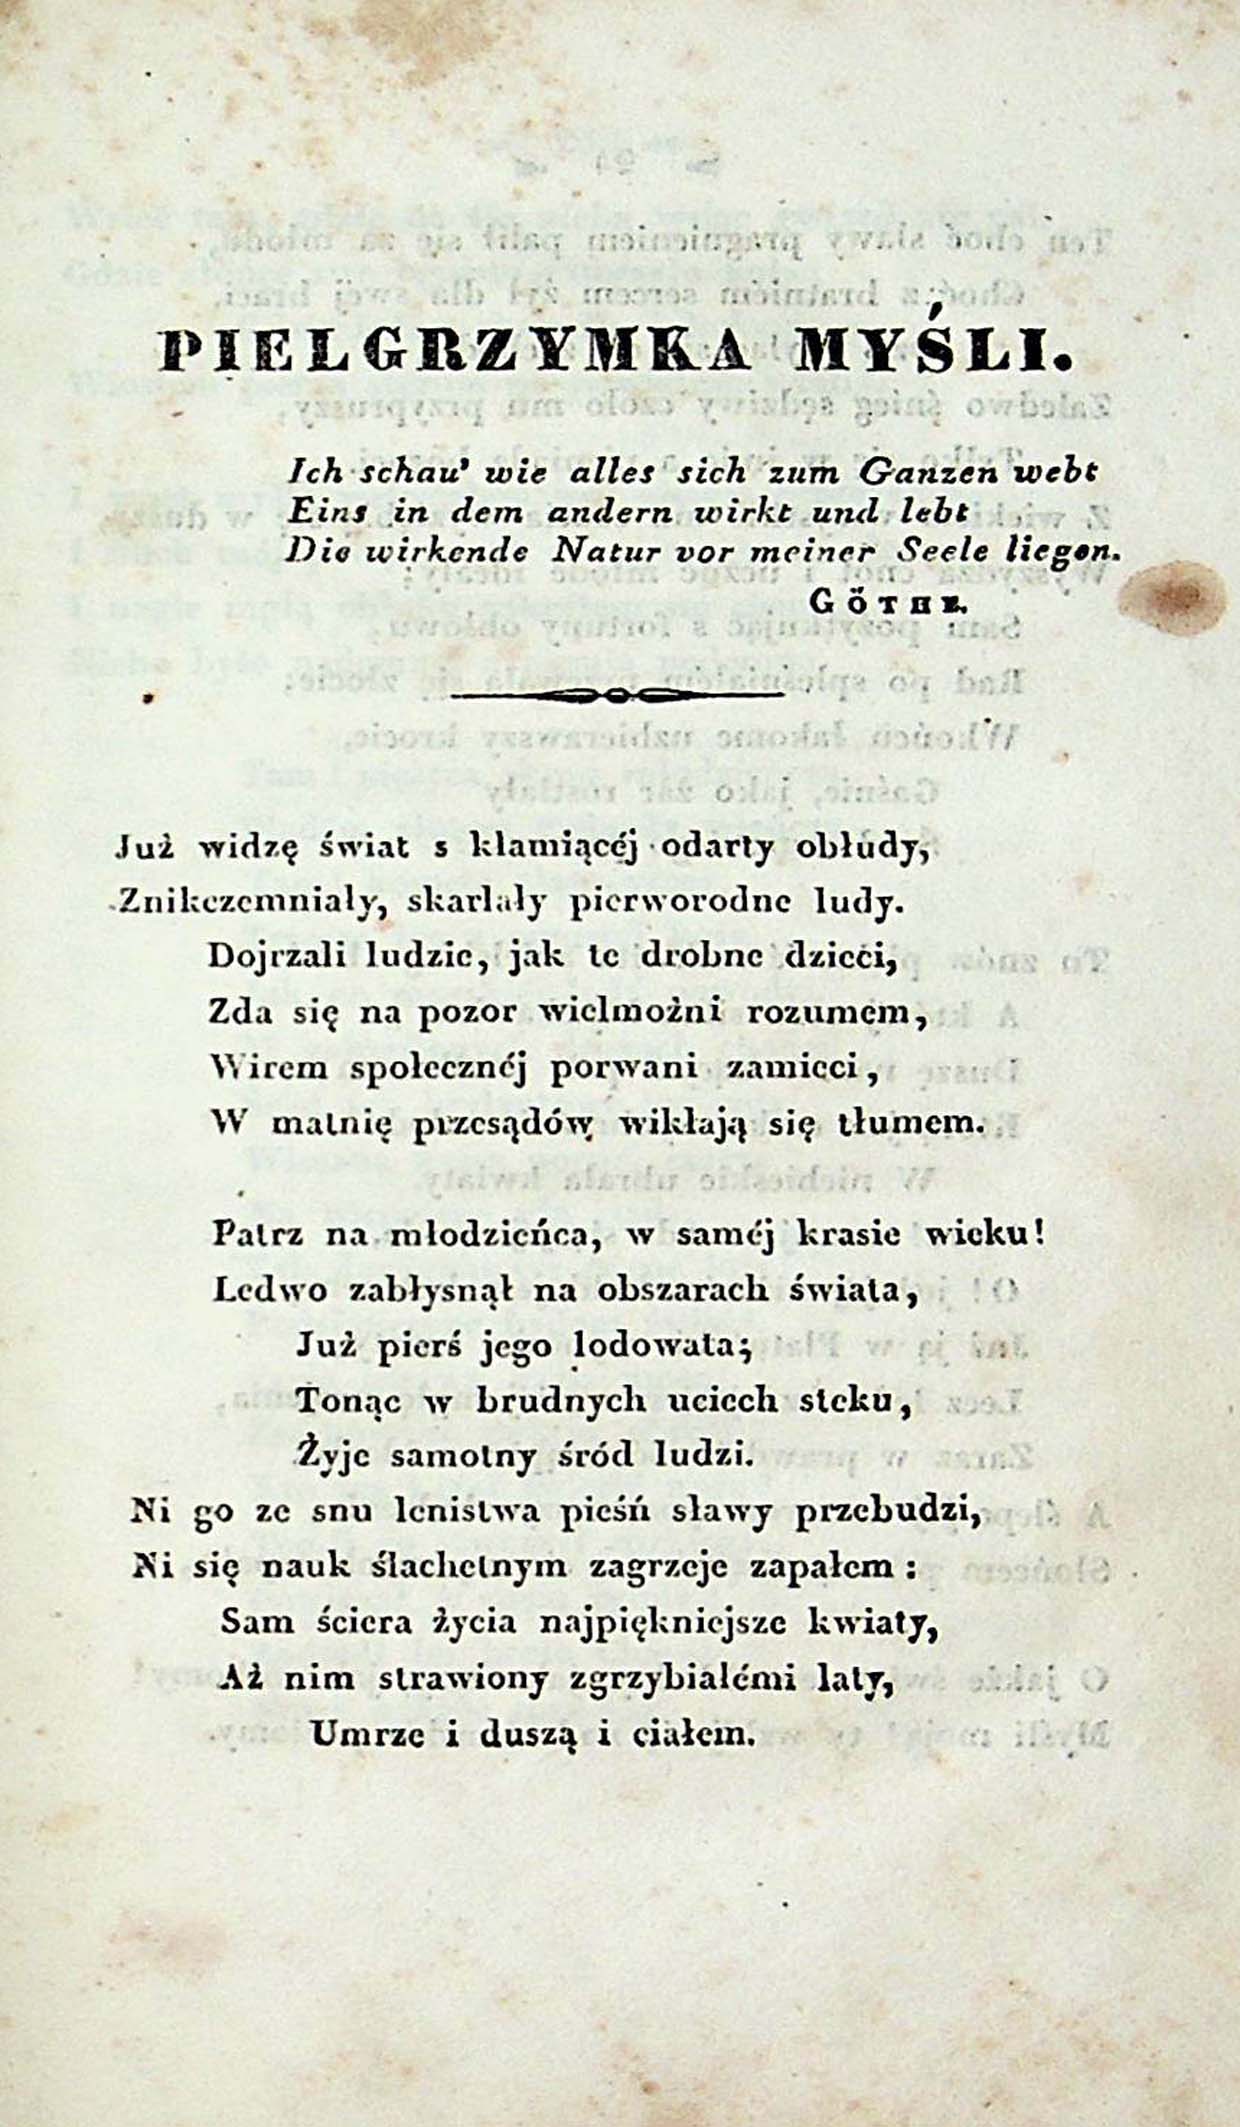 PIELGRZYMKA MYŚLI.
Ich schau' wie alles sich zum Ganzen webt
Eins in dem andern wirkt und lebt
Die wirkende Natur vor meiner Seele liegen.
GÖTHE.
Już widzę świat s kłamiącéj odarty obłudy,
Znikczemniały, skarlały pierworodne ludy.
Dojrzali ludzie, jak te drobne dzieci,
Zda się na pozor wielmożni rozumem,
Wirem społecznéj porwani zamieci,
W matnię przesądów wikłają się tłumem.
Patrz na młodzieńca, w saméj krasie wieku!
Ledwo zabłysnął na obszarach świata,
Już pierś jego lodowata;
Tonąc w brudnych uciech steku,
Żyje samotny śród ludzi.
Ni go ze snu lenistwa pieśń sławy przebudzi,
Ni się nauk ślachetnym zagrzeje zapałem:
Sam ściera życia najpiękniejsze kwiaty,
Aż nim strawiony zgrzybiałémi laty,
Umrze i duszą i ciałem.